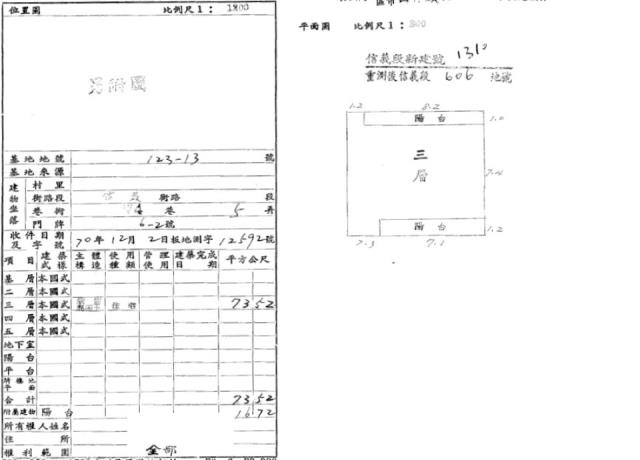 位置圖 比例尺1: 1200
另附圖
基地地號 123-13 號
基地來源
建物坐落
村里
街路段 信義 街路 段
巷衖 巷 5 弄
門牌 6-2號
收件日期及字號 70年12月2日板地測字12592號
項目 建築式樣 主體構造 使用種類 管理使用 建築完成日期 平方公尺
基層 本國式
二層 本國式
三層 本國式 住宅 73 52
四層 本國式
五層 本國式
地下室
陽台
平台
合計 73 52
附屬建物 陽台 16 72
所有權人姓名
住所
權利範圍 全部
平面圖 比例尺1:
信義段新建號 1310
重測後信義段 606 地號
1.2 8.2
陽台 1.0
三層
7.4
陽台 1.2
2.3 7.1